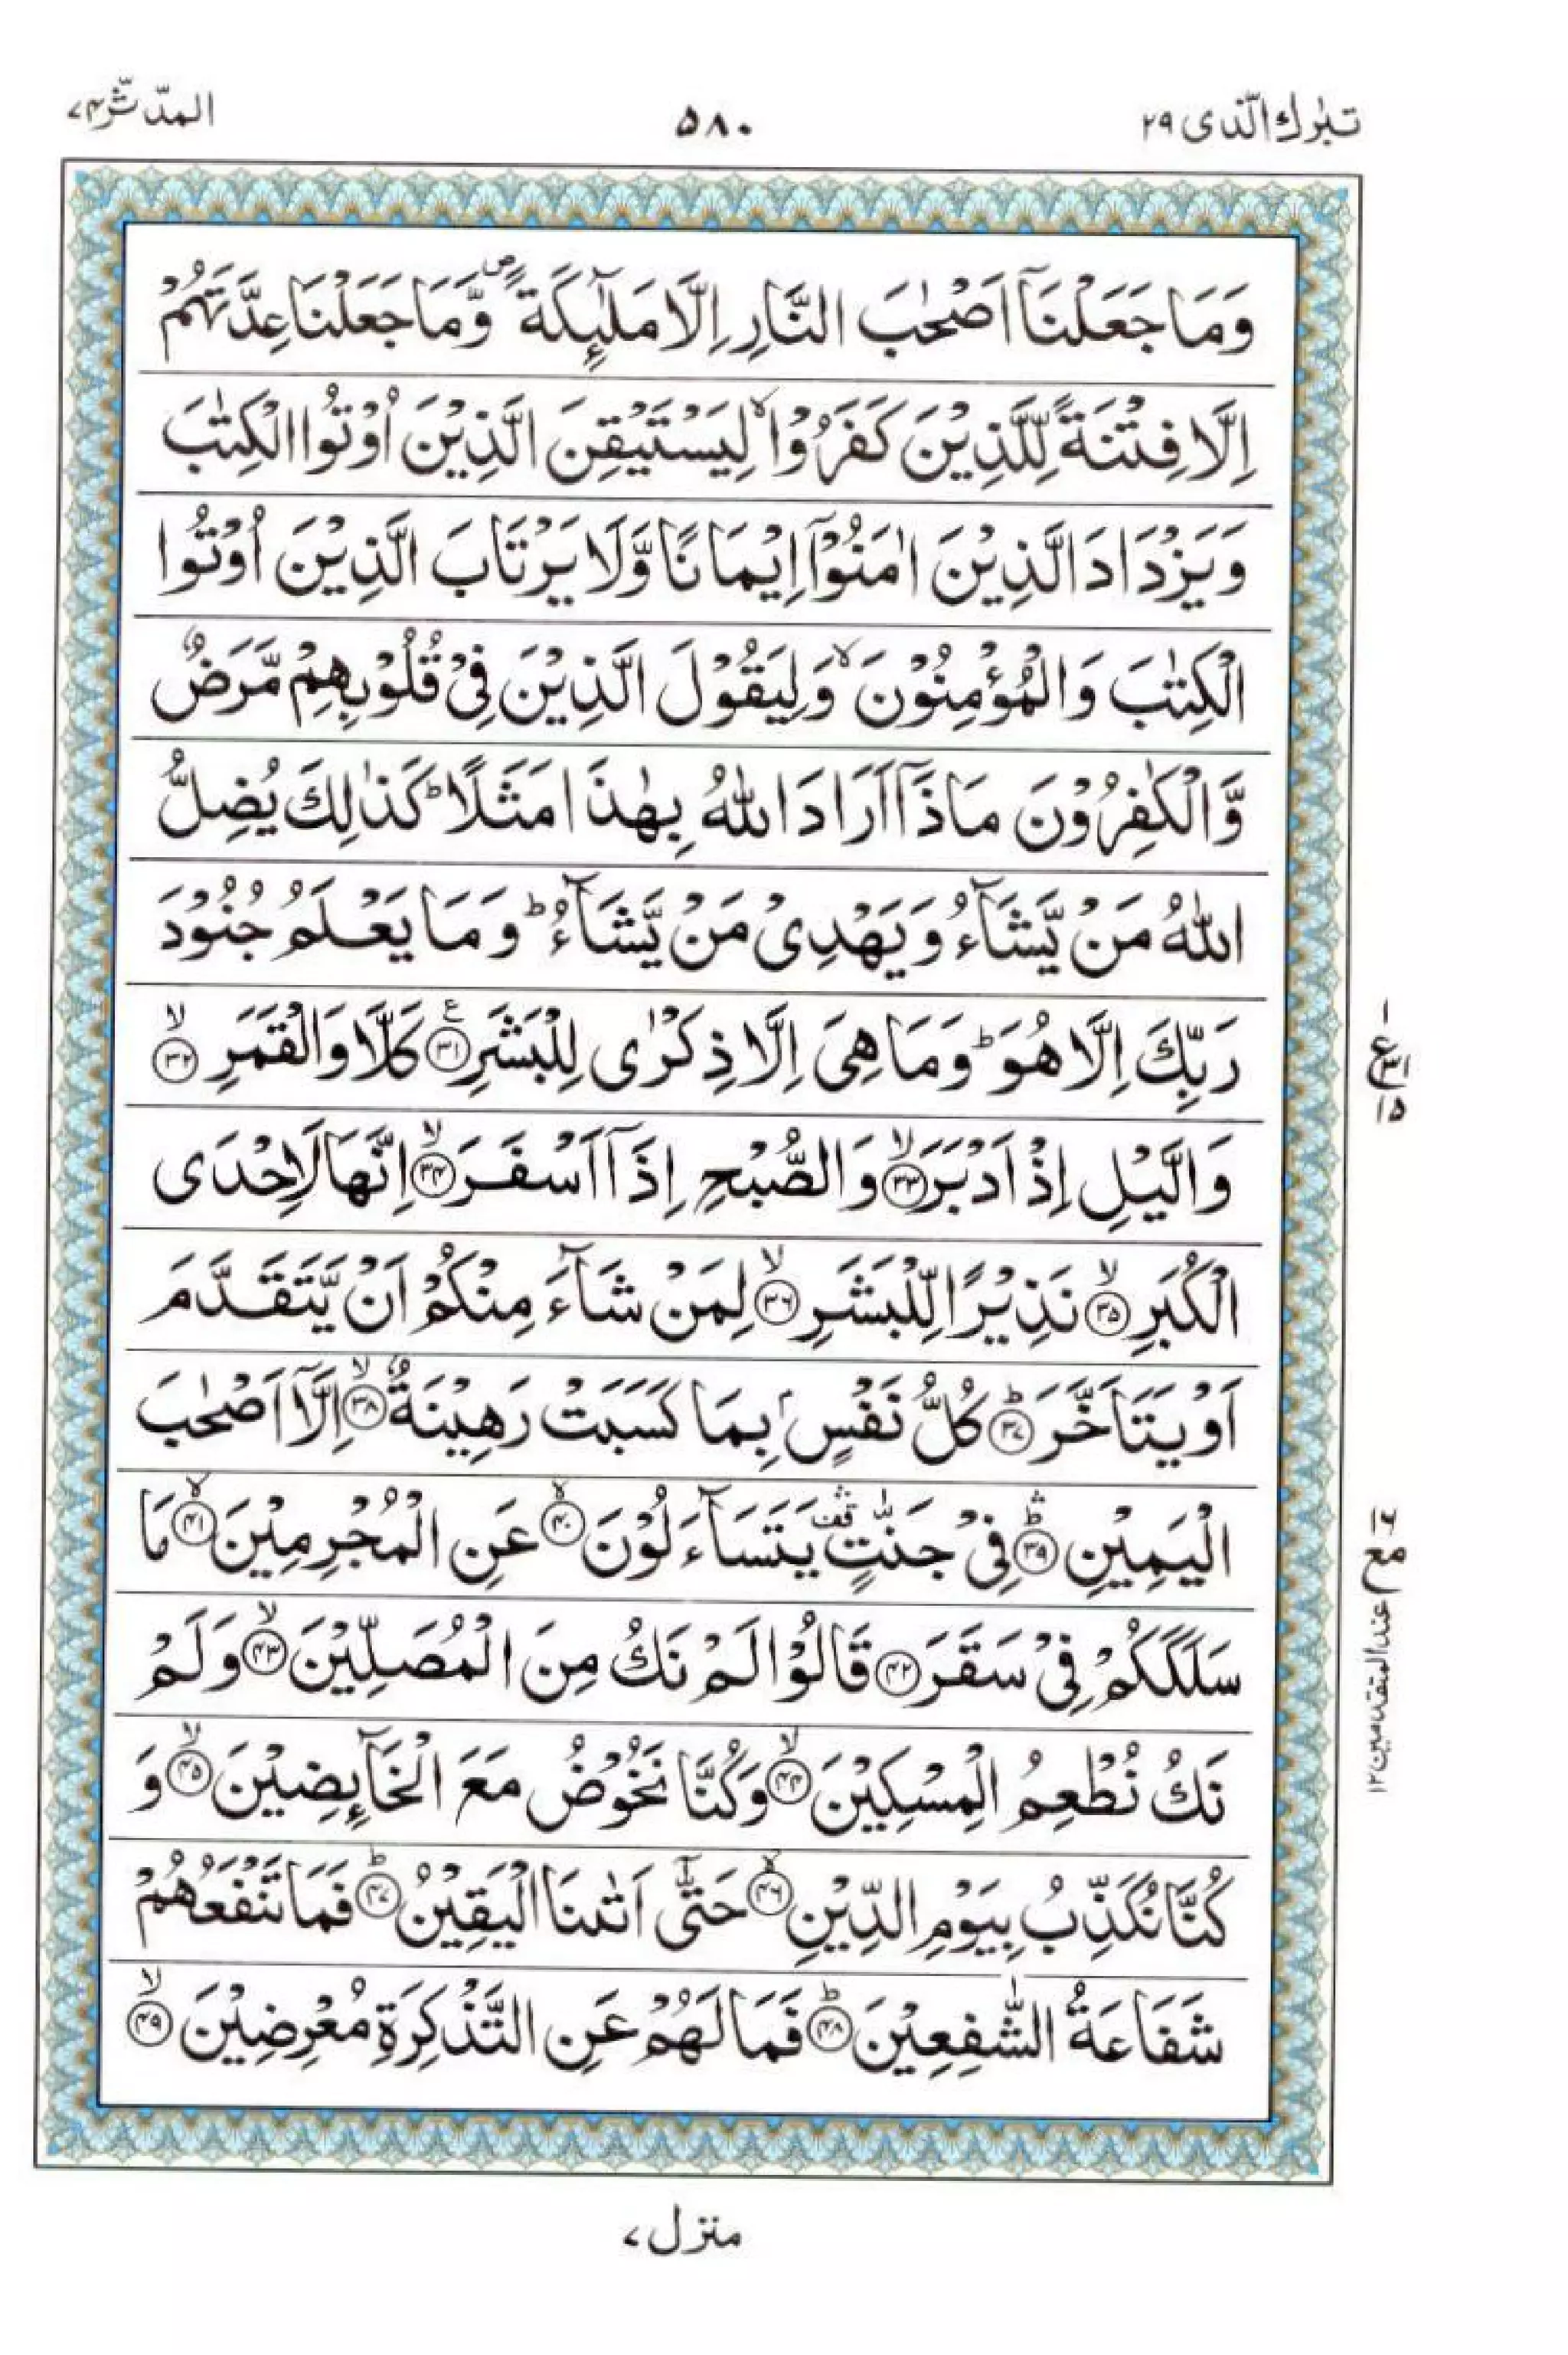 تبٰرك الّذی ۲۹
۵۸۰
المدّثّر ۷۴
وَمَا جَعَلْنَاۤ اَصْحٰبَ النَّارِ اِلَّا مَلٰٓئِكَةً ۪ وَّمَا جَعَلْنَا عِدَّتَهُمْ
اِلَّا فِتْنَةً لِّلَّذِيْنَ كَفَرُوْا ۙ لِيَسْتَيْقِنَ الَّذِيْنَ اُوْتُوا الْكِتٰبَ
وَيَزْدَادَ الَّذِيْنَ اٰمَنُوْۤا اِيْمَانًا وَّلَا يَرْتَابَ الَّذِيْنَ اُوْتُوا
الْكِتٰبَ وَالْمُؤْمِنُوْنَ ۙ وَلِيَقُوْلَ الَّذِيْنَ فِىْ قُلُوْبِهِمْ مَّرَضٌ
وَّالْكٰفِرُوْنَ مَاذَاۤ اَرَادَ اللّٰهُ بِهٰذَا مَثَلًا ؕ كَذٰلِكَ يُضِلُّ
اللّٰهُ مَنْ يَّشَآءُ وَيَهْدِىْ مَنْ يَّشَآءُ ؕ وَمَا يَعْلَمُ جُنُوْدَ
رَبِّكَ اِلَّا هُوَ ؕ وَمَا هِىَ اِلَّا ذِكْرٰى لِلْبَشَرِ ۳۱ ع كَلَّا وَالْقَمَرِ ۳۲ ۙ
وَالَّيْلِ اِذْ اَدْبَرَ ۳۳ ۙ وَالصُّبْحِ اِذَاۤ اَسْفَرَ ۳۴ ۙ اِنَّهَا لَاِحْدَى
الْكُبَرِ ۳۵ ۙ نَذِيْرًا لِّلْبَشَرِ ۳۶ ۙ لِمَنْ شَآءَ مِنْكُمْ اَنْ يَّتَقَدَّمَ
اَوْ يَتَاَخَّرَ ۳۷ ؕ كُلُّ نَفْسٍۭ بِمَا كَسَبَتْ رَهِيْنَةٌ ۳۸ ۙ اِلَّاۤ اَصْحٰبَ
الْيَمِيْنِ ۳۹ ؕۛ فِىْ جَنّٰتٍ ۛ قف يَتَسَآءَلُوْنَ ۴۰ ۙ عَنِ الْمُجْرِمِيْنَ ۴۱ ۙ مَا
سَلَكَكُمْ فِىْ سَقَرَ ۴۲ قَالُوْا لَمْ نَكُ مِنَ الْمُصَلِّيْنَ ۴۳ ۙ وَلَمْ
نَكُ نُطْعِمُ الْمِسْكِيْنَ ۴۴ ۙ وَكُنَّا نَخُوْضُ مَعَ الْخَآئِضِيْنَ ۴۵ ۙ وَ
كُنَّا نُكَذِّبُ بِيَوْمِ الدِّيْنِ ۴۶ ۙ حَتّٰٓى اَتٰىنَا الْيَقِيْنُ ۴۷ ؕ فَمَا تَنْفَعُهُمْ
شَفَاعَةُ الشّٰفِعِيْنَ ۴۸ ؕ فَمَا لَهُمْ عَنِ التَّذْكِرَةِ مُعْرِضِيْنَ ۴۹ ۙ
۱
ع ۳۱
۱۵
مع
عند المتقدمين ۱۲
منزل ۷